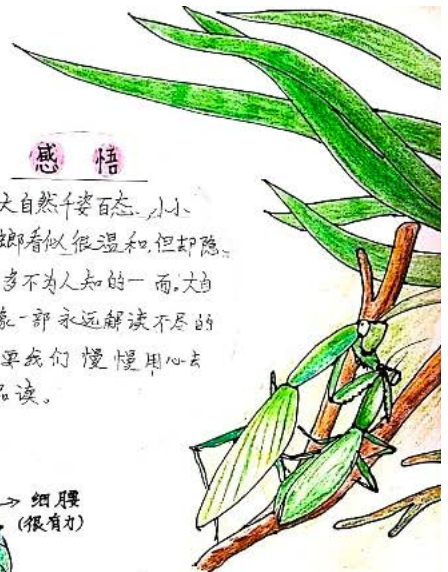 感悟
大自然千姿百态、小小
螂看似很温和,但却隐
多不为人知的一面。大自
象一部永远解读不尽的
要我们慢慢用心去
品读。
→ 细腰
(很有力)